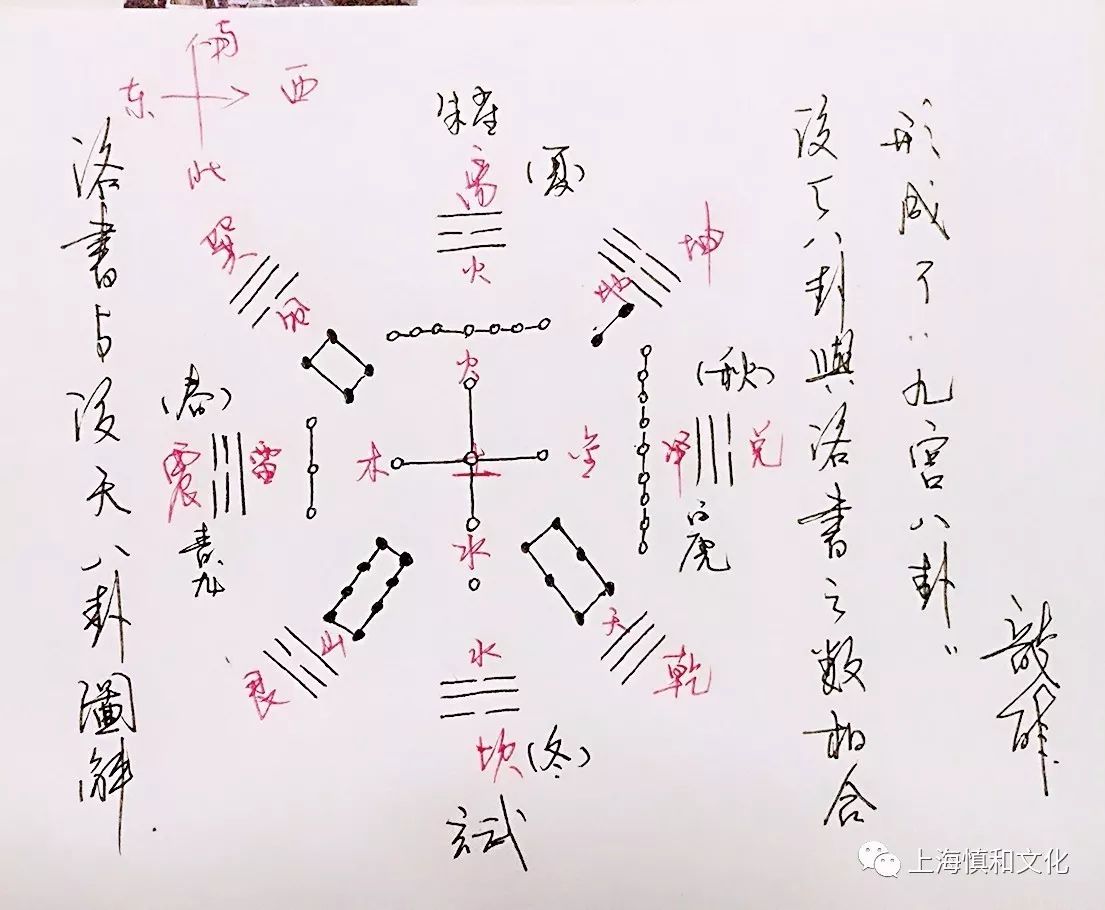 南
东 西
北
洛書与后天八卦圖解
朱雀
离 (夏)
火
巽
风
坤
地
火
(春)
震 雷
青龙
木 土 金
(秋)
泽 兑
白虎
水
艮
山
天
乾
水
坎 (冬)
玄武
形成了“九宫八卦”
后天八卦與洛書之数相合
上海慎和文化